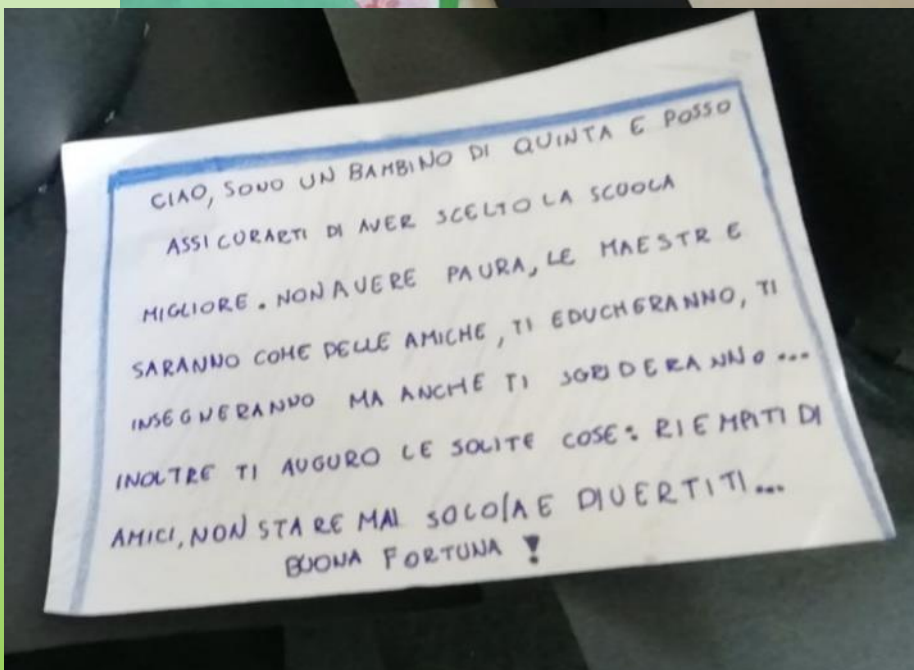 CIAO, SONO UN BAMBINO DI QUINTA E POSSO
ASSICURARTI DI AVER SCELTO LA SCUOLA
MIGLIORE. NON AVERE PAURA, LE MAESTRE
SARANNO COME DELLE AMICHE, TI EDUCHERANNO, TI
INSEGNERANNO MA ANCHE TI SGRIDERANNO...
INOLTRE TI AUGURO LE SOLITE COSE: RIEMPITI DI
AMICI, NON STARE MAI SOLO/A E DIVERTITI...
BUONA FORTUNA!